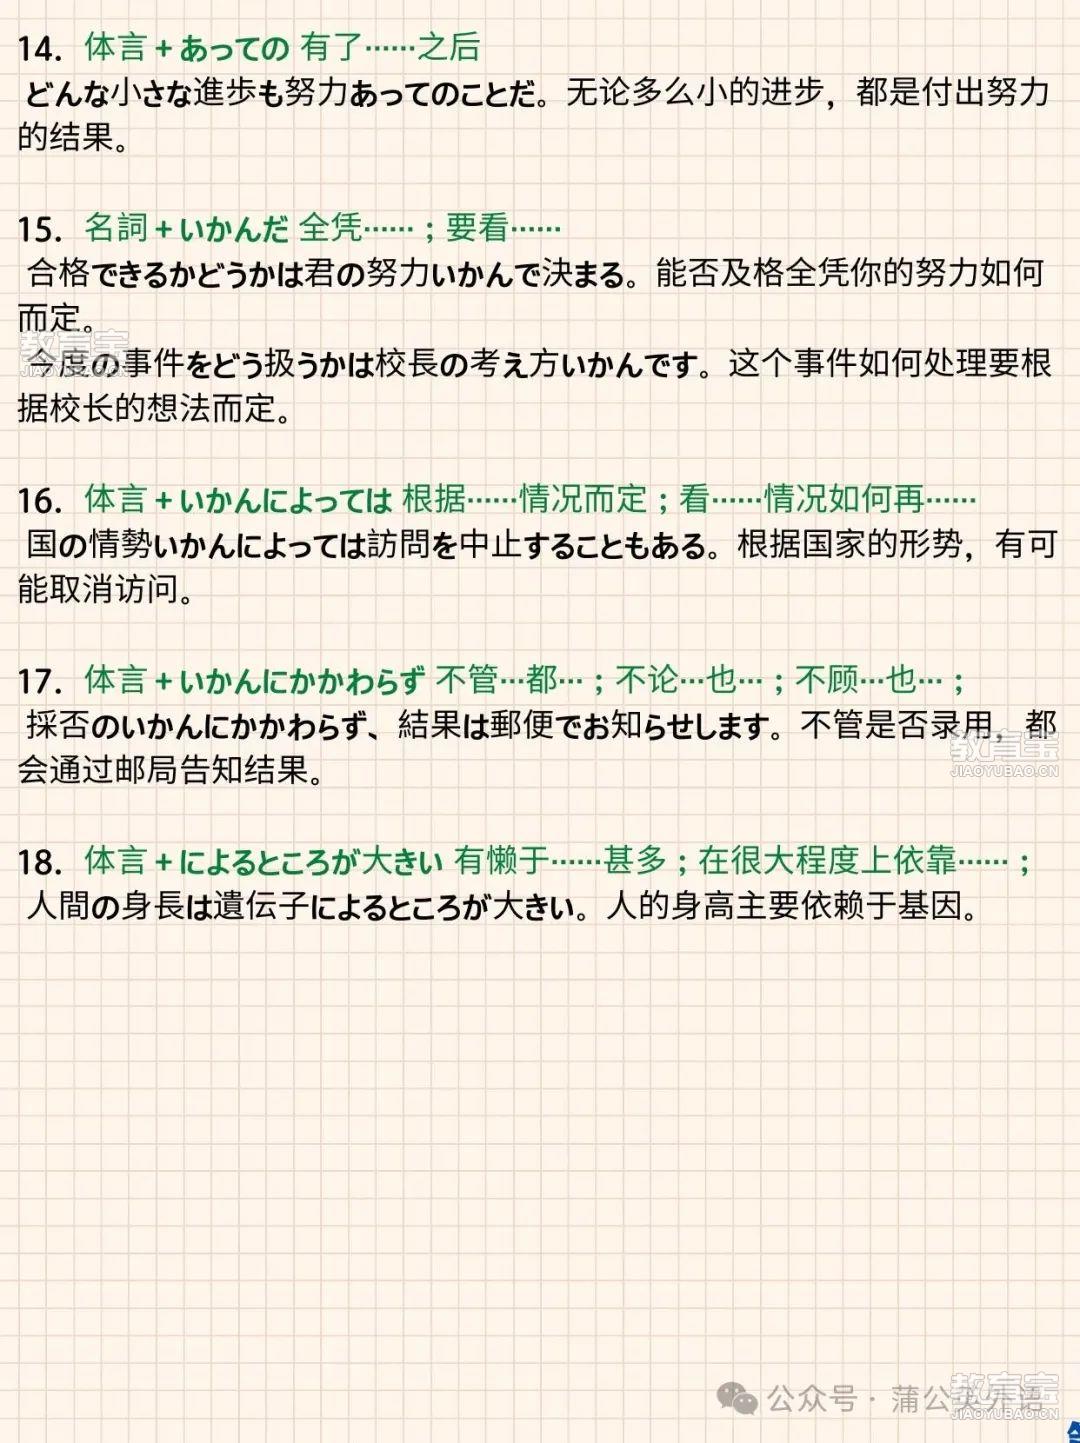 14. 体言+あっての 有了……之后
どんな小さな進歩も努力あってのことだ。无论多么小的进步，都是付出努力
的结果。
15. 名詞+いかんだ 全凭……；要看……
合格できるかどうかは君の努力いかんで決まる。能否及格全凭你的努力如何
而定。
教育宝
JIAOYUBAO.CN
今度の事件をどう扱うかは校長の考え方いかんです。这个事件如何处理要根
据校长的想法而定。
16. 体言+いかんによっては 根据……情况而定；看……情况如何再……
国の情勢いかんによっては訪問を中止することもある。根据国家的形势，有可
能取消访问。
17. 体言+いかんにかかわらず 不管…都…；不论…也…；不顾…也…；
採否のいかんにかかわらず、結果は郵便でお知らせします。不管是否录用，都
会通过邮局告知结果。
教育宝
JIAOYUBAO.CN
18. 体言+によるところが大きい 有懒于……甚多；在很大程度上依靠……；
人間の身長は遺伝子によるところが大きい。人的身高主要依赖于基因。
公众号·蒲公英外语
教育宝
JIAOYUBAO.CN